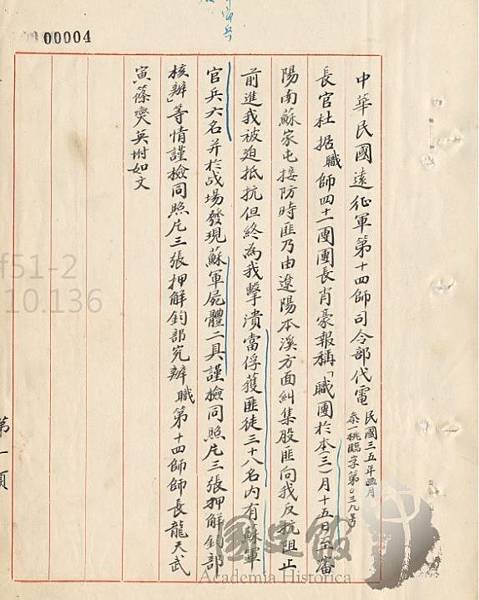 00004
中華民國遠征軍第十四師司令部代電
民國三五年三月
長官杜据職師四十二團團長肖豪報稱「職團於本(三)月十五日在瀋
陽南蘇家屯接防時匪乃由遼陽本溪方面糾集股匪向我反抗阻止
前進我被迫抵抗但終為我擊潰當俘獲匪徒三十八名内有蘇軍
官兵六名并於战場發現蘇軍屍體二具謹檢同照片三張押解鈞部
核辦」等情謹檢同照片三張押解鈞部究辦 職第十四師師長龍天武
寅篠燮英附如文
第一頁
f51-2
10.136
國史館
Academia Historica